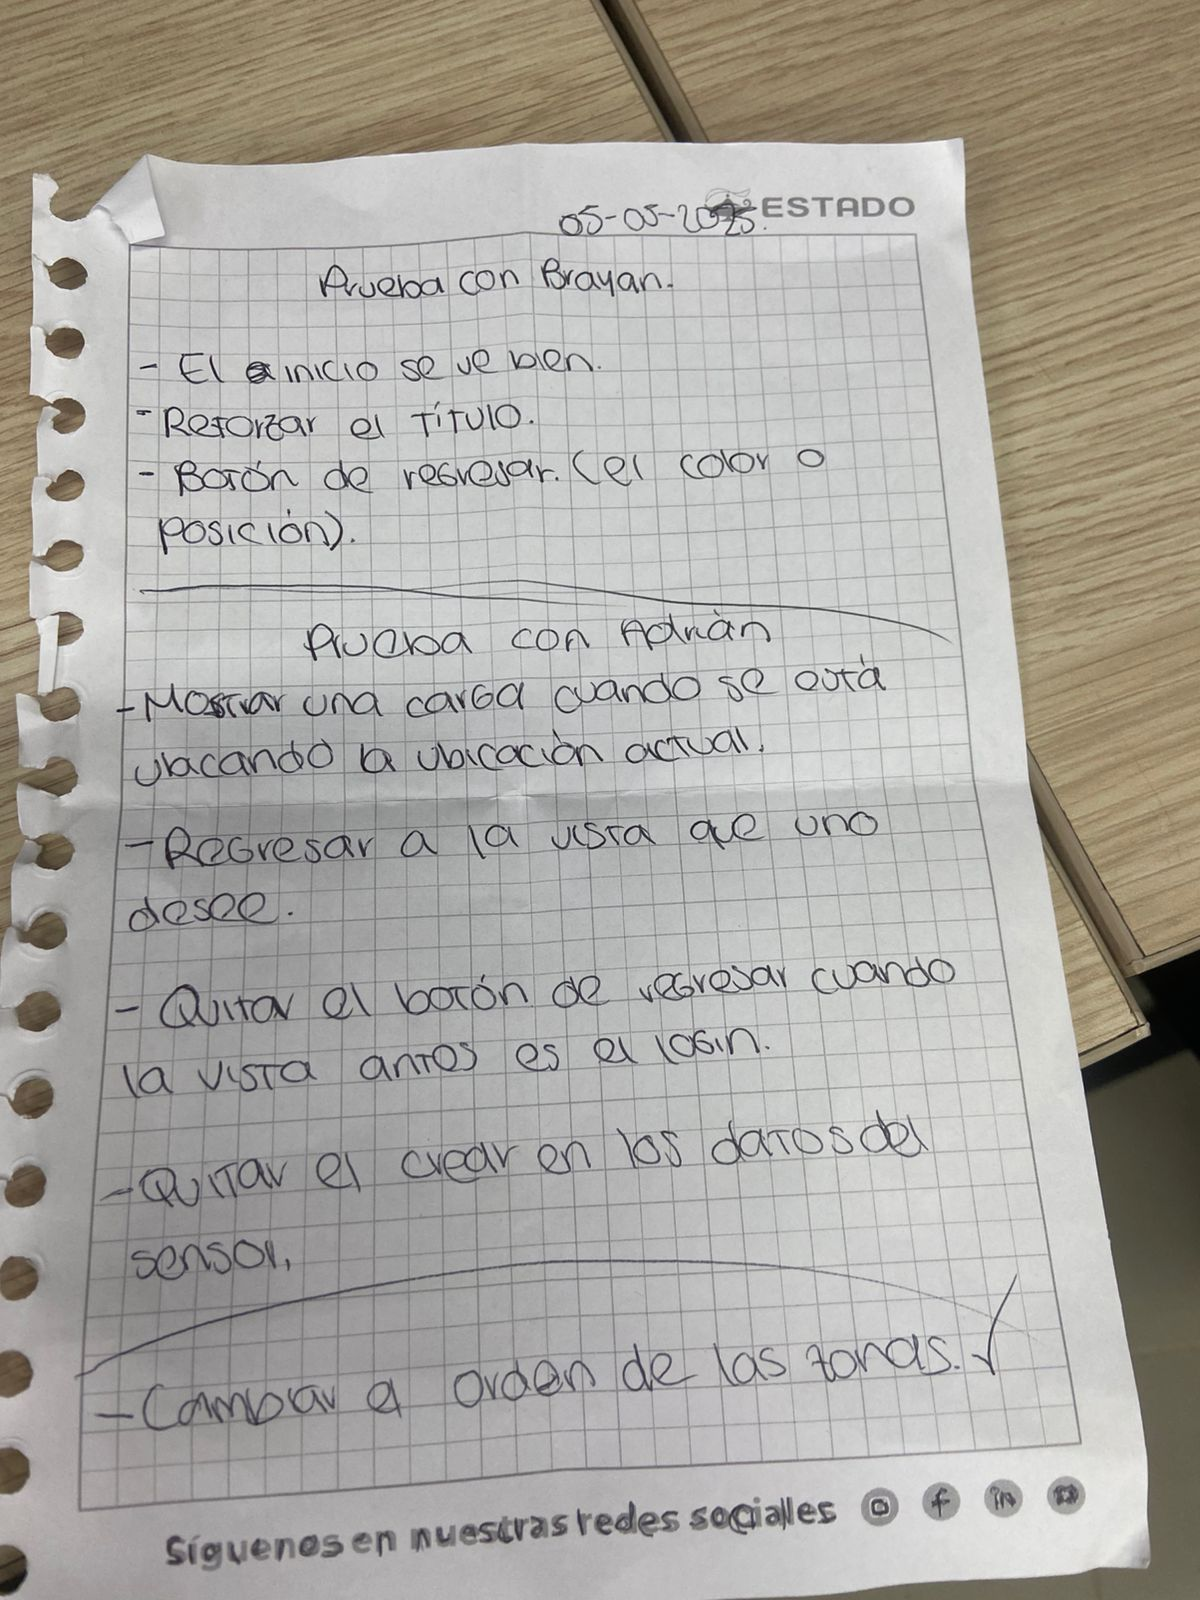 ESTADO
05-05-2025.
Prueba con Brayan.
- El inicio se ve bien.
- Reforzar el título.
- Botón de regresar. (el color o
posición).
Prueba con Adrián
- Mostrar una carga cuando se está
ubacando la ubicación actual.
- Regresar a la vista que uno
desee.
- Quitar el botón de regresar cuando
la vista antes es el login.
- Quitar el crear en los datos del
sensor.
- Cambiar el orden de las zonas. ✓
Síguenos en nuestras redes sociales